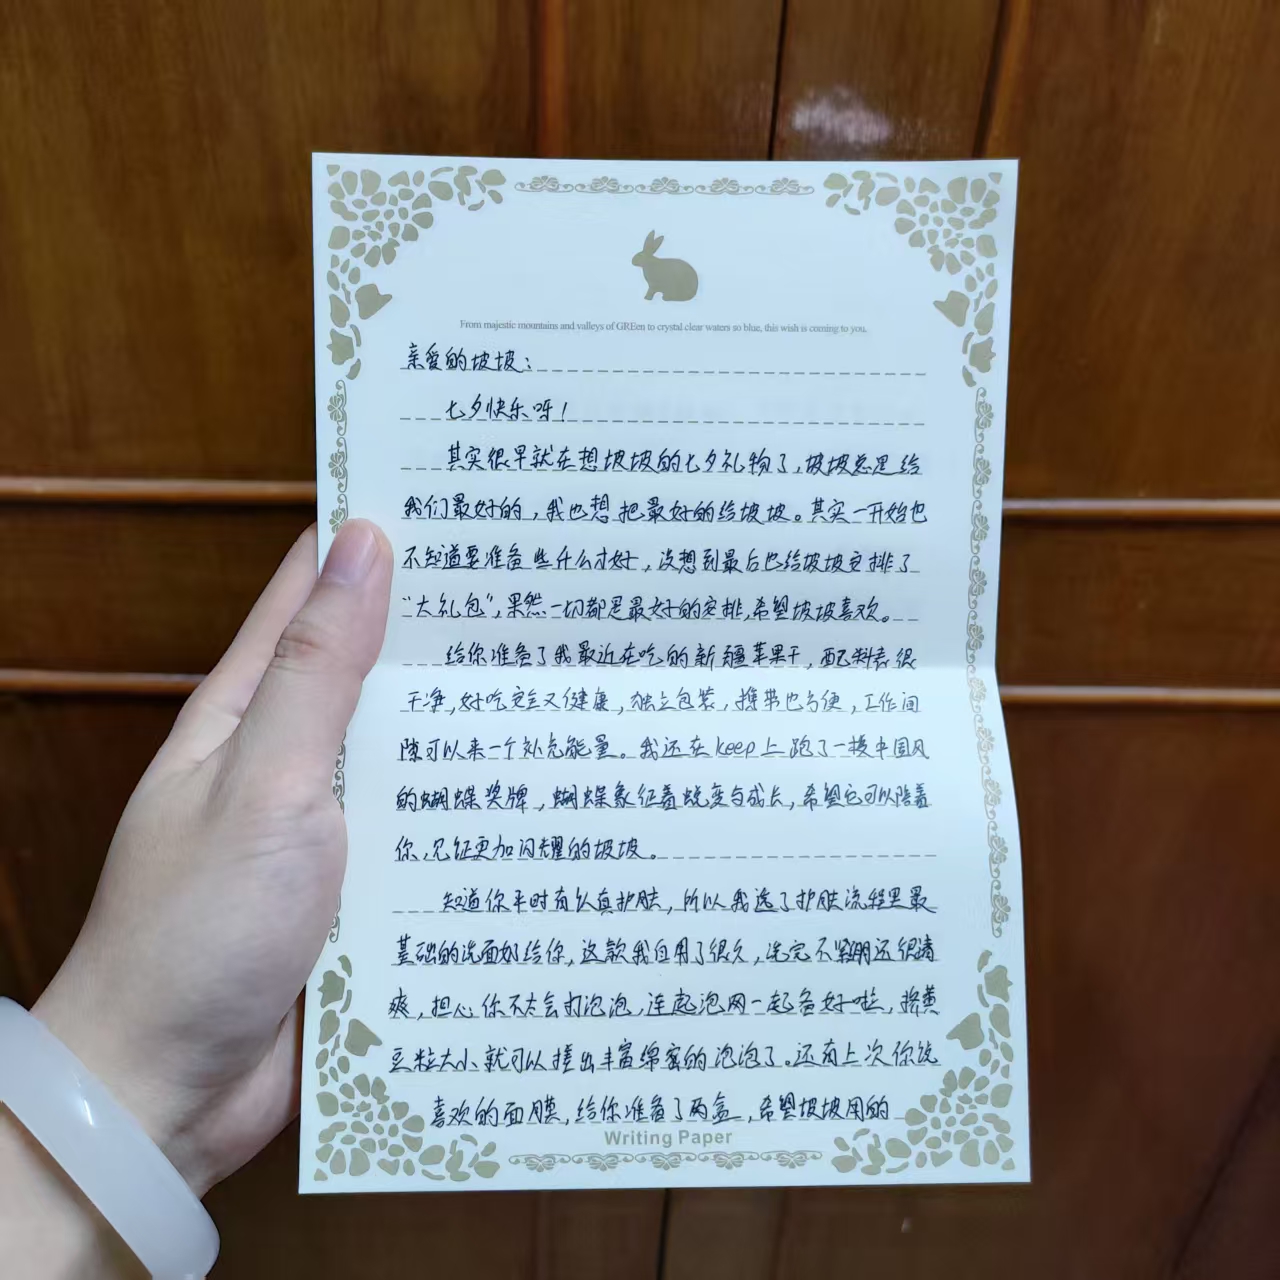 From majestic mountains and valleys of GREen to crystal clear waters so blue, this wish is coming to you.
亲爱的坡坡：
七夕快乐呀！
其实很早就在想坡坡的七夕礼物了，坡坡总是给
我们最好的，我也想把最好的给坡坡。其实一开始也
不知道要准备些什么才好，没想到最后也给坡坡安排了
“大礼包”，果然一切都是最好的安排，希望坡坡喜欢。
给你准备了我最近在吃的新疆苹果干，配料表很
干净，好吃安全又健康，独立包装，携带也方便，工作间
隙可以来一个补充能量。我还在keep上跑了一块中国风
的蝴蝶奖牌，蝴蝶象征着蜕变与成长，希望它可以陪着
你，见证更加闪耀的坡坡。
知道你平时有认真护肤，所以我选了护肤流程里最
基础的洗面奶给你，这款我自用了很久，洗完不紧绷还很清
爽，担心你不太会打泡泡，连起泡网一起备好啦，挤黄
豆粒大小就可以搓出丰富绵密的泡泡了。还有上次你说
喜欢的面膜，给你准备了两盒，希望坡坡用的
Writing Paper